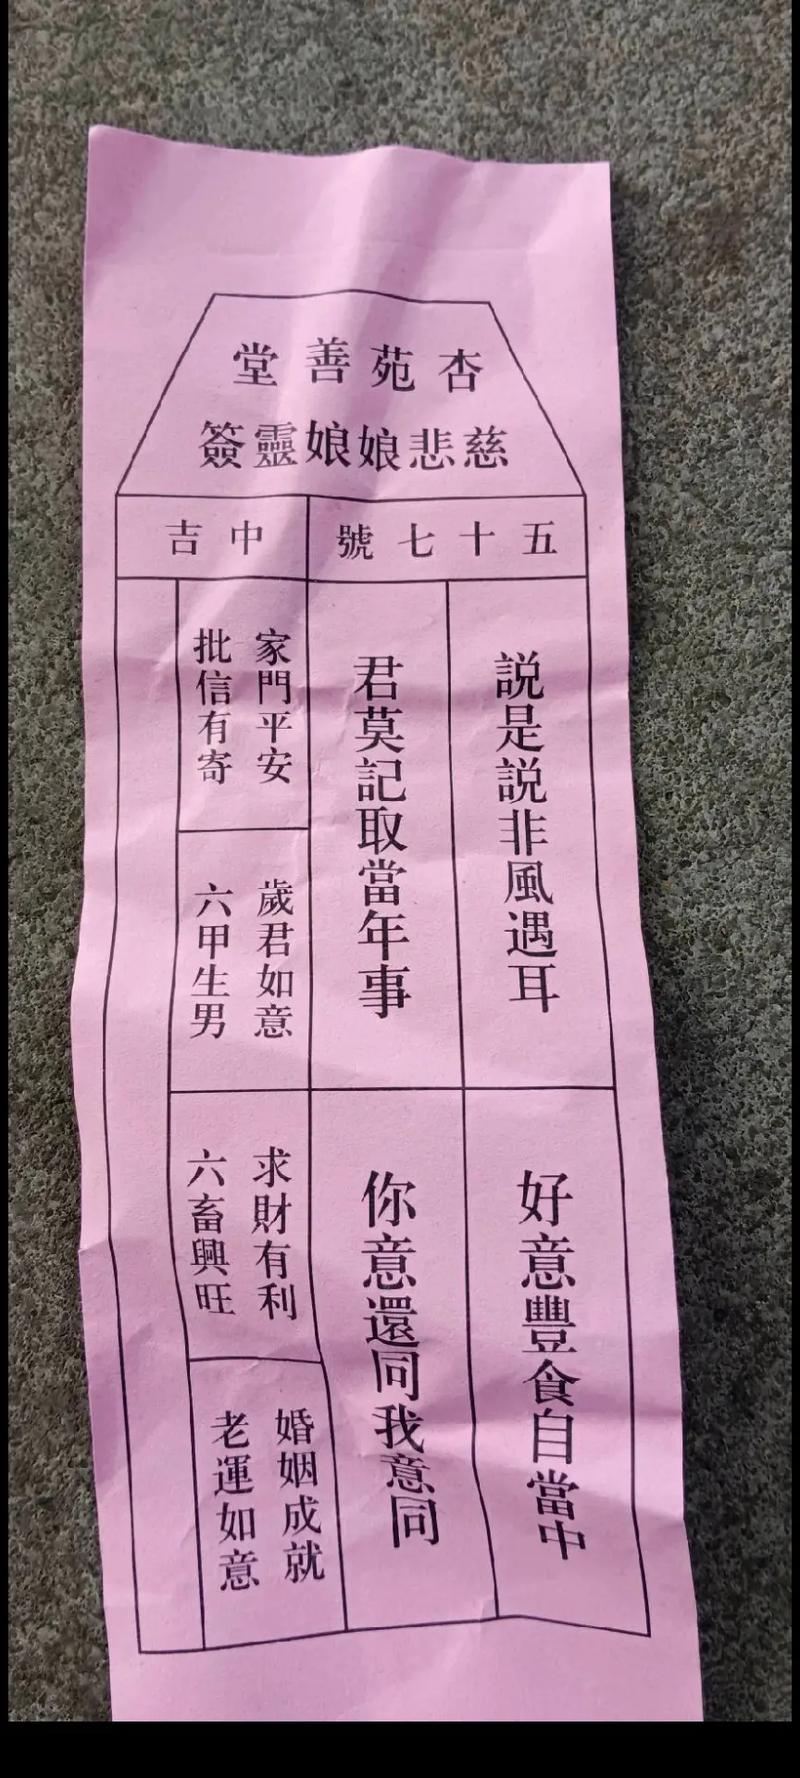 杏苑善堂
慈悲娘娘靈簽
五十七號
中吉
説是説非風遇耳
好意豐食自當中
君莫記取當年事
你意還同我意同
家門平安
批信有寄
歲君如意
六甲生男
求財有利
六畜興旺
婚姻成就
老運如意